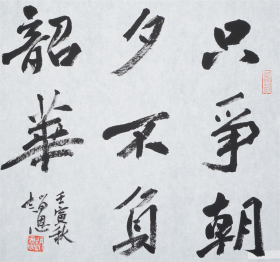 只争朝
夕不负
韶華
壬寅秋